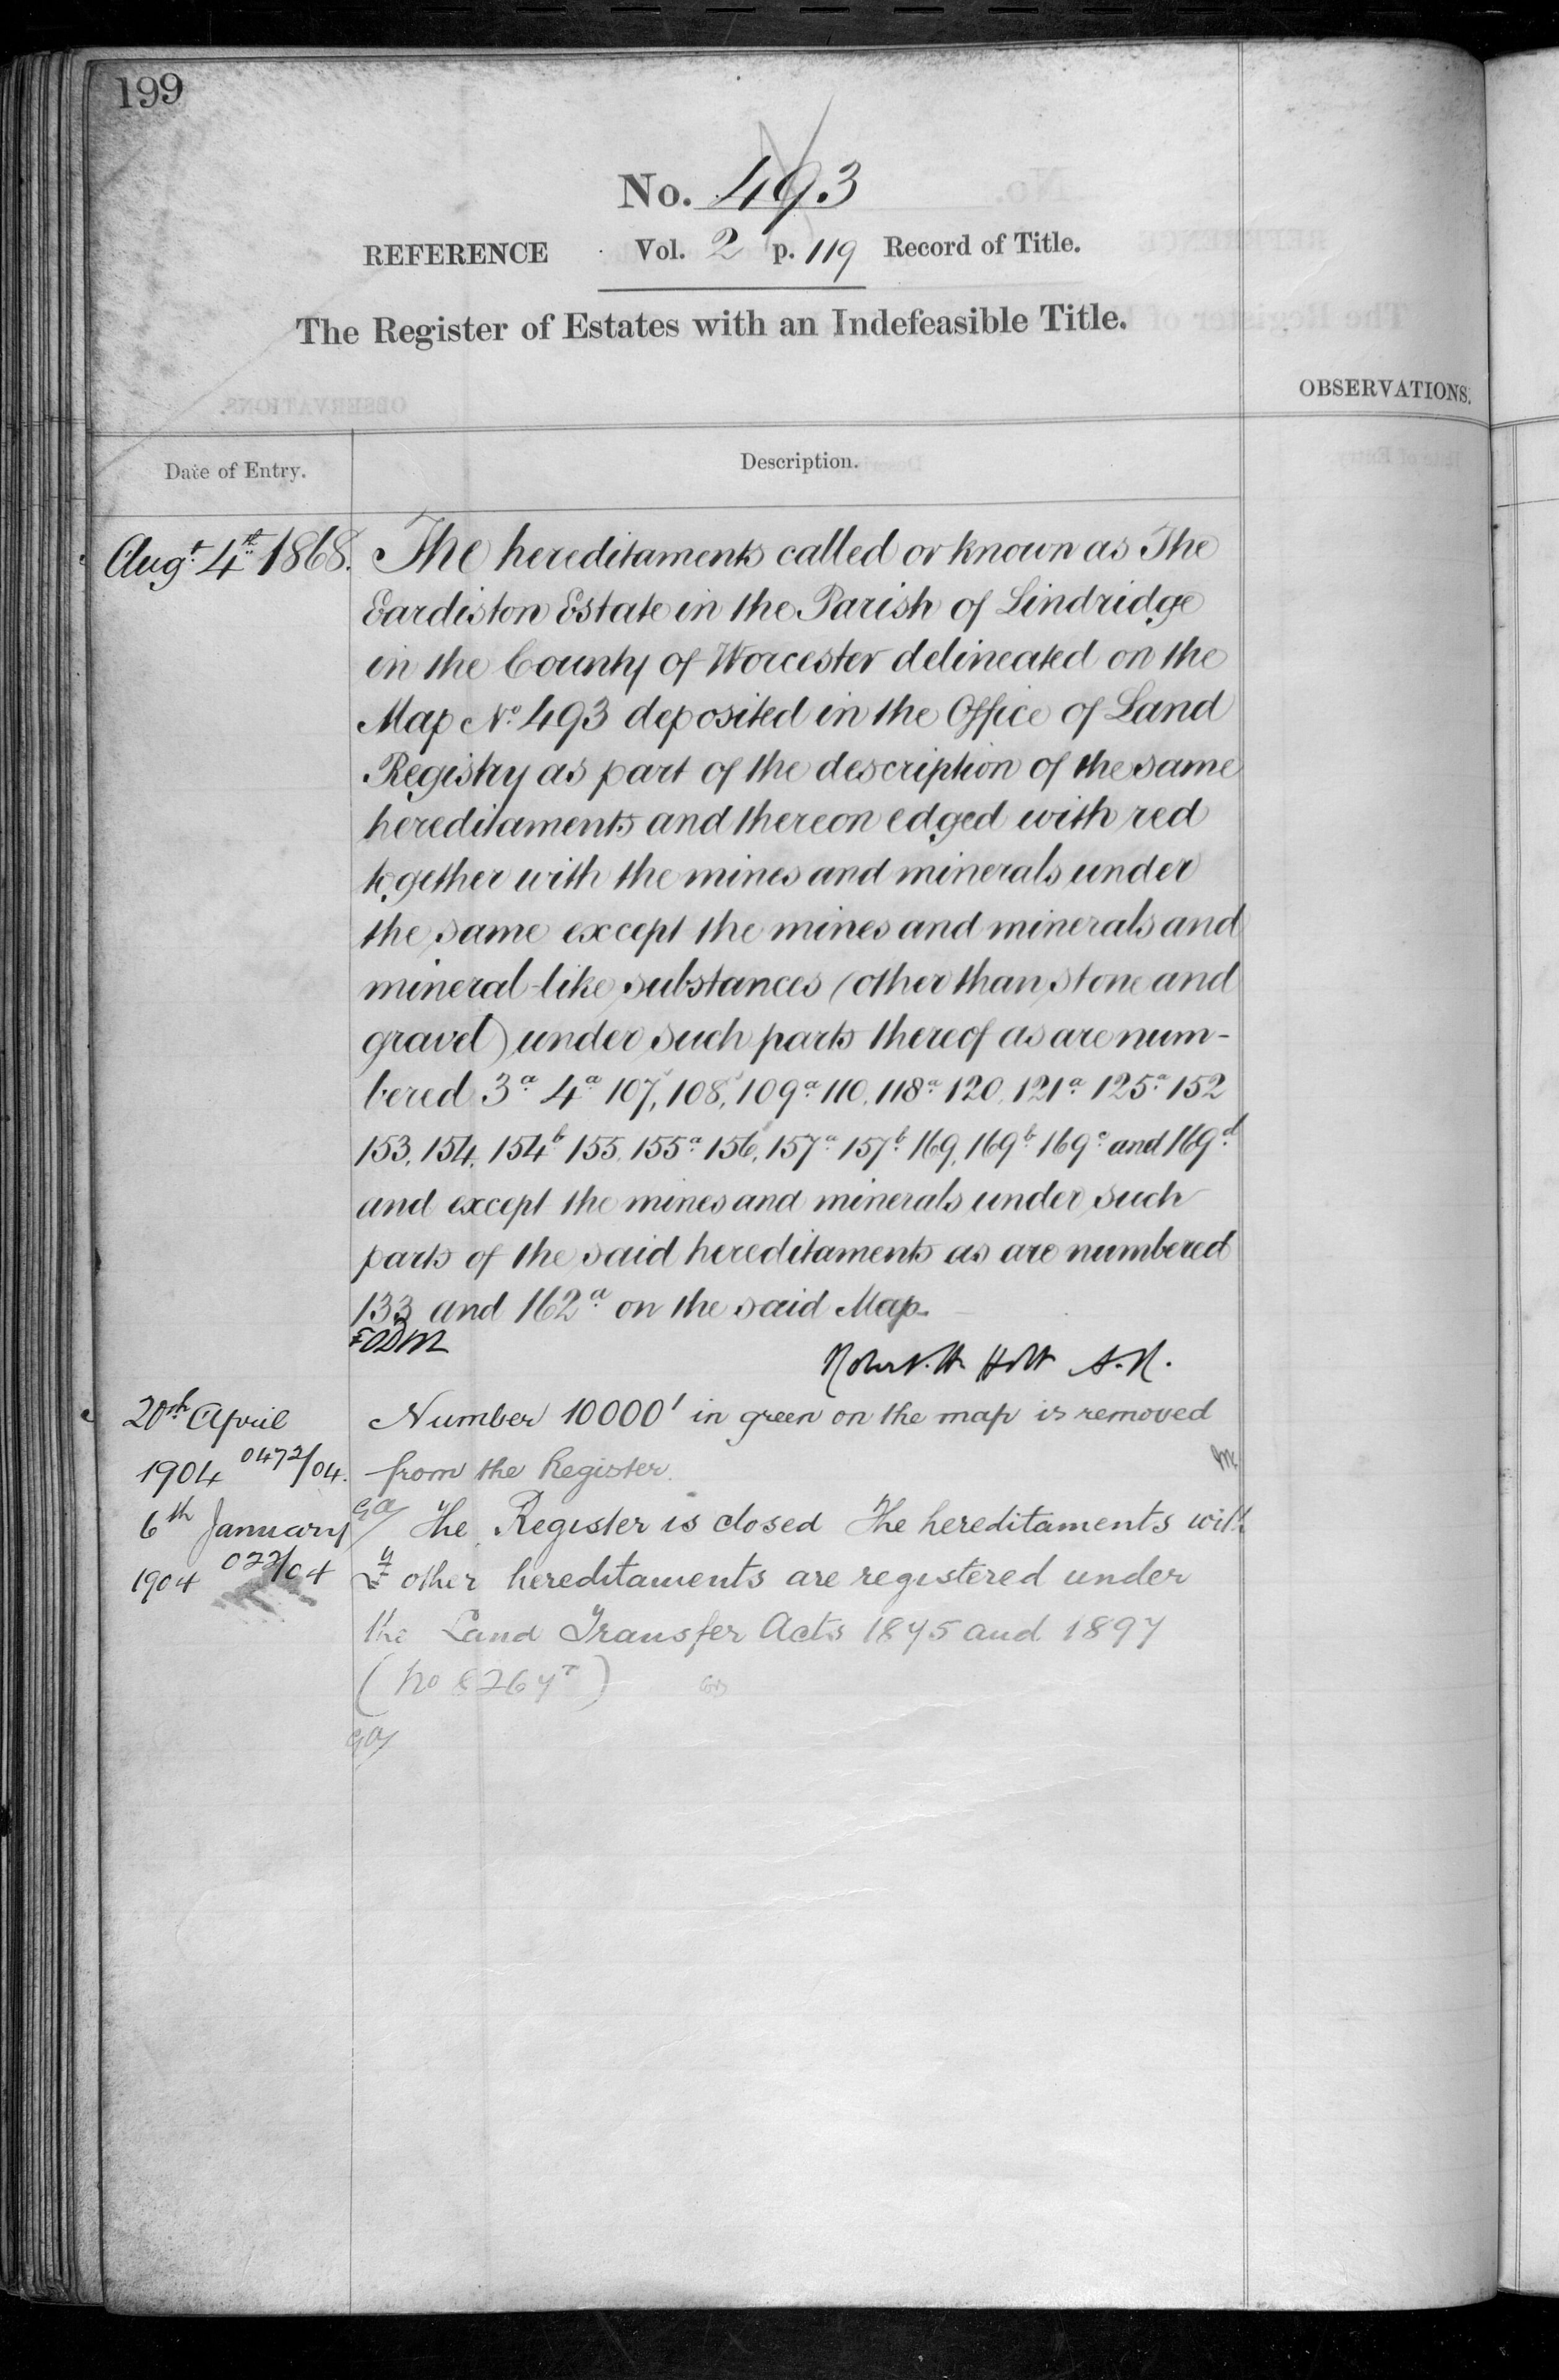 199
No. 493
REFERENCE Vol. 2 p. 119 Record of Title.
The Register of Estates with an Indefeasible Title.
OBSERVATIONS.
Date of Entry. Description.
Augt. 4th 1868. The hereditaments called or known as The
Eardiston Estate in the Parish of Lindridge
in the County of Worcester delineated on the
Map No. 493 deposited in the Office of Land
Registry as part of the description of the same
hereditaments and thereon edged with red
together with the mines and minerals under
the same except the mines and minerals and
mineral-like substances (other than stone and
gravel) under such parts thereof as are num-
bered 3a 4a 107, 108, 109a 110, 118a 120, 121a 125a 152
153, 154, 154b 155, 155a 156, 157a 157b 169, 169b 169c and 169d
and except the mines and minerals under such
parts of the said hereditaments as are numbered
133 and 162a on the said Map.
Robert. H. Holt A.R.
20th April Number 10000' in green on the map is removed
1904 0472/04. from the Register.
6th January The Register is closed The hereditaments with
1904 022/04 other hereditaments are registered under
the Land Transfer Acts 1875 and 1897
(No 8267)